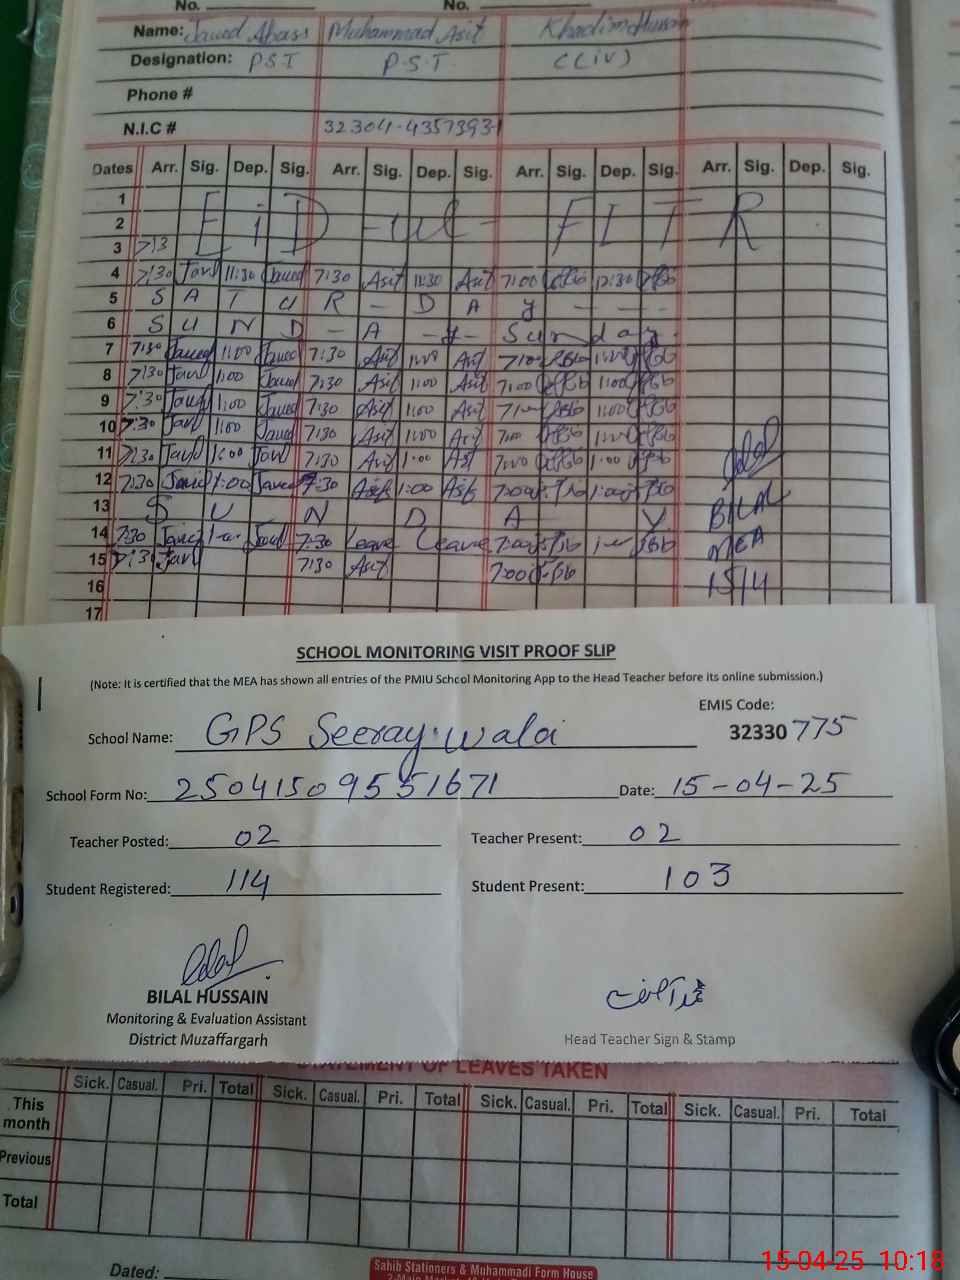 No. No.
Name: Javed Abass Muhammad Asif Khadim Hussain
Designation: P.S.T P.S.T C(iv)
Phone #
N.I.C # 32304-4357393-1
Dates Arr. Sig. Dep. Sig. Arr. Sig. Dep. Sig. Arr. Sig. Dep. Sig. Arr. Sig. Dep. Sig.
1
2 EiD -ul- FITR
3 7:3
4 7:30 Javed 11:30 Javed 7:30 Asif 11:30 Asif 7:00 12:30
5 S A T U R - D A y - - -
6 S U N D - A - y - Sunday.
7 7:30 Javed 1:00 Javed 7:30 Asif 1:00 Asif 7:00 1:00
8 7:30 Javed 1:00 Javed 7:30 Asif 1:00 Asif 7:00 1:00
9 7:30 Javed 1:00 Javed 7:30 Asif 1:00 Asif 1:00
10 7:30 Javed 1:00 Javed 7:30 Asif 1:00 Asif 7:00 1:00
11 7:30 Javed 1:00 Javed 7:30 Asif 1:00 Asif 7:00 1:00
12 7:30 Javed 1:00 Javed 7:30 Asif 1:00 Asif 7:00 1:00
13 S U N D A Y BILAL
14 7:30 Javed Javed 7:30 Leave Leave 7:00 MEA
15 7:30 Javed 7:30 Asif 7:00
16 15/4
17
SCHOOL MONITORING VISIT PROOF SLIP
(Note: It is certified that the MEA has shown all entries of the PMIU School Monitoring App to the Head Teacher before its online submission.)
EMIS Code:
School Name: GPS Seeray wala 32330 775
School Form No: 25041509551671 Date: 15-04-25
Teacher Posted: 02 Teacher Present: 02
Student Registered: 114 Student Present: 103
BILAL HUSSAIN
Monitoring & Evaluation Assistant
District Muzaffargarh Head Teacher Sign & Stamp
STATEMENT OF LEAVES TAKEN
Sick. Casual. Pri. Total Sick. Casual. Pri. Total Sick. Casual. Pri. Total Sick. Casual. Pri. Total
This month
Previous
Total
Dated:
Sahib Stationers & Muhammadi Form House
15-04-25 10:18